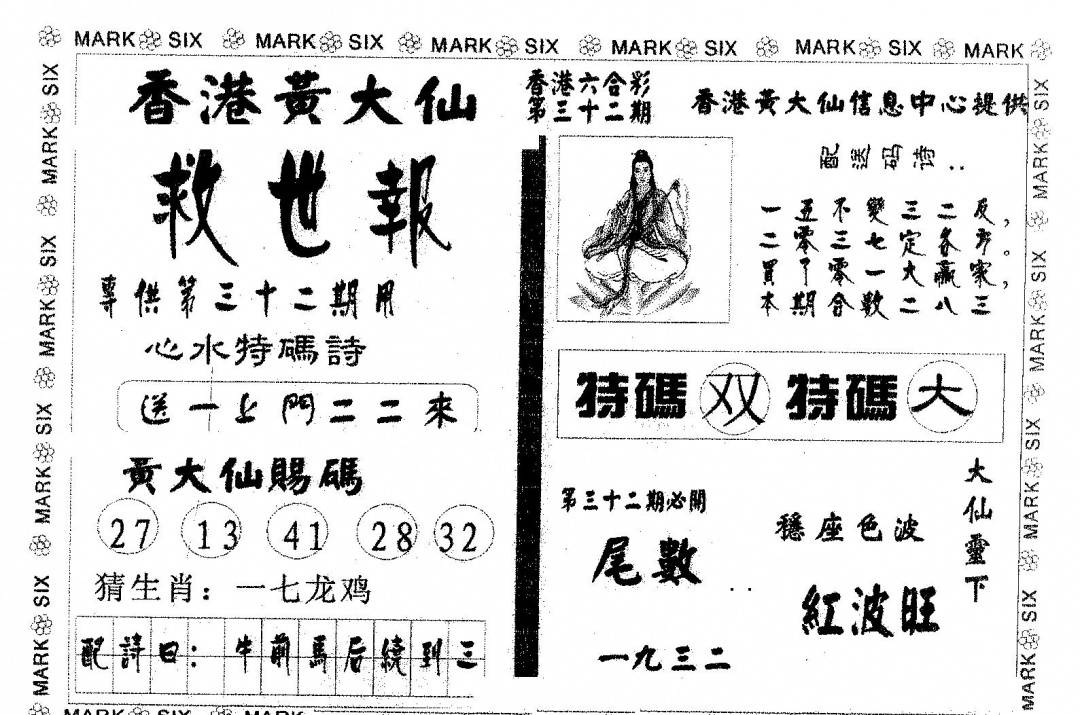 MARK SIX MARK SIX MARK SIX MARK SIX MARK SIX MARK
香港黃大仙
救世報
專供第三十二期用
心水特碼詩
送一上門二二來
黃大仙賜碼
27 13 41 28 32
猜生肖：一七龙鸡
配詩曰：牛前馬后繞到三
香港六合彩
第三十二期
香港黃大仙信息中心提供
配送码诗：
一五不變三二反，
二零三七定各方。
買了零一大贏家，
本期合數二八三
特碼 双 特碼 大
第三十二期必開
尾數
一九三二
穩座色波
紅波旺
大仙靈下
MARK SIX MARK SIX MARK SIX MARK SIX
MARK SIX MARK SIX MARK SIX MARK SIX
MARK SIX MARK